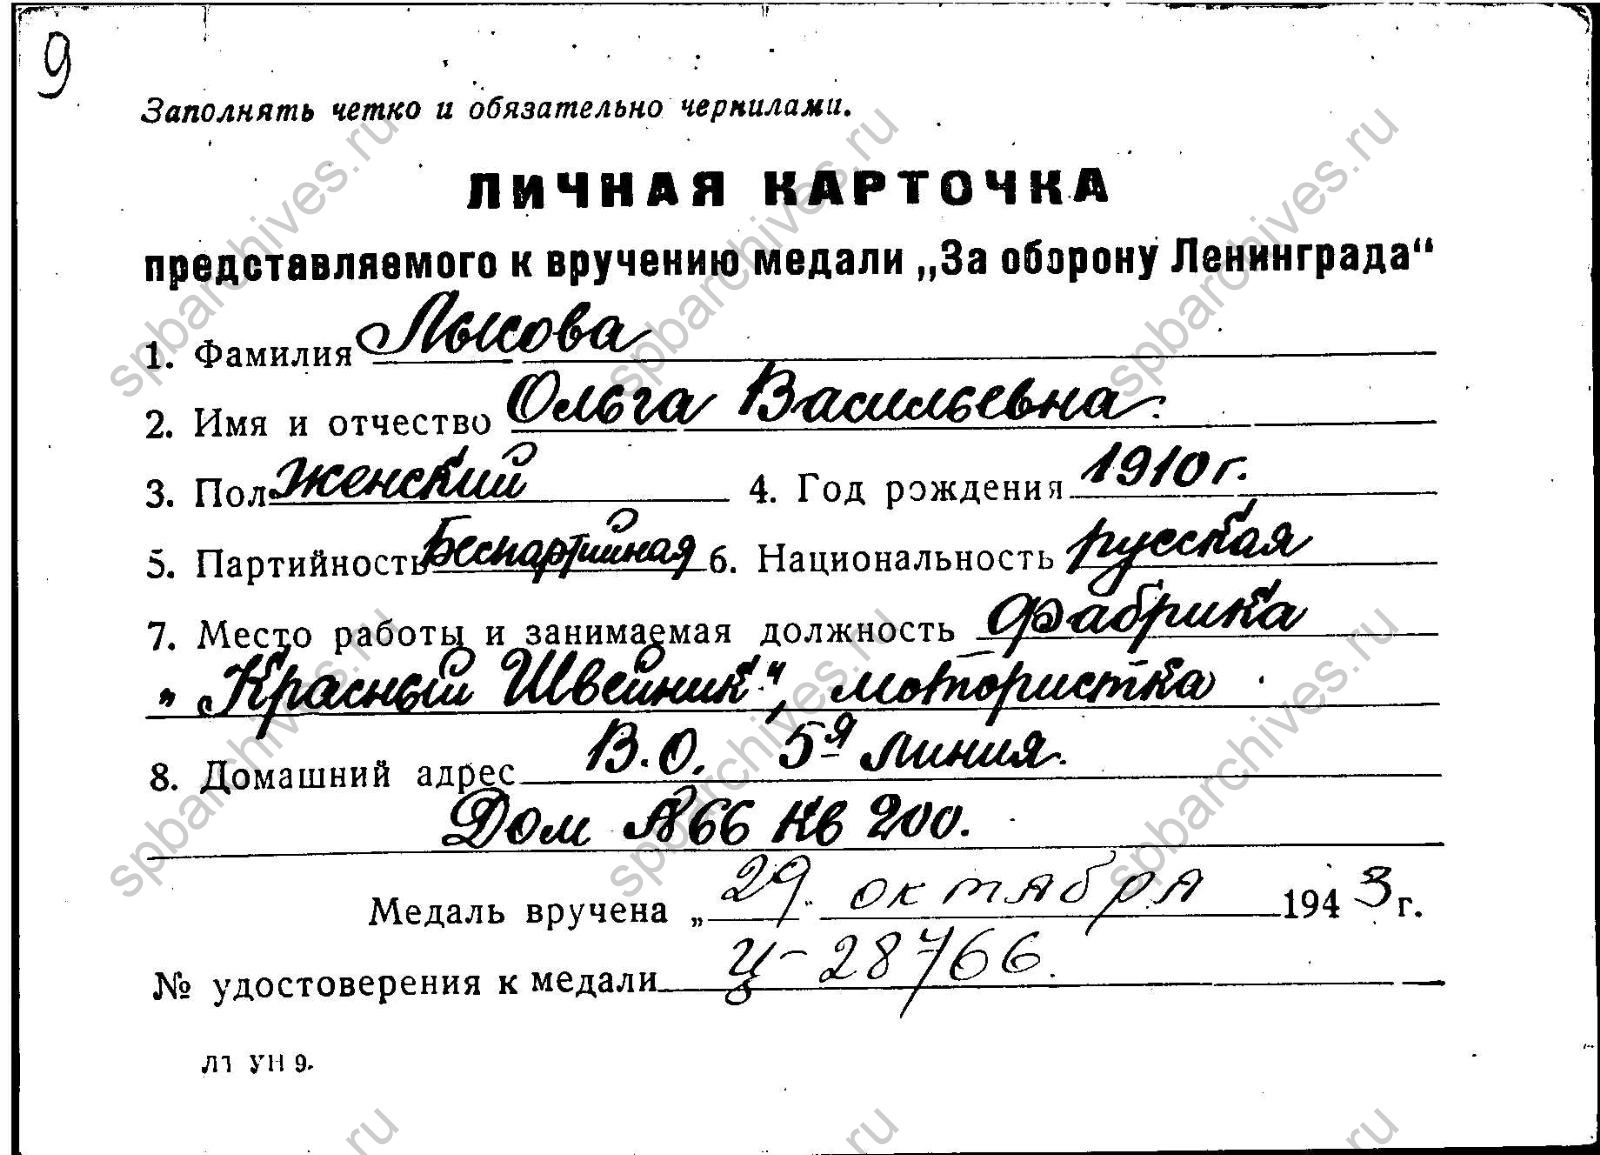 9
Заполнять четко и обязательно чернилами.
ЛИЧНАЯ КАРТОЧКА
представляемого к вручению медали „За оборону Ленинграда“
1. Фамилия Лысова
2. Имя и отчество Ольга Васильевна.
3. Пол женский 4. Год рождения 1910 г.
5. Партийность Беспартийная 6. Национальность русская
7. Место работы и занимаемая должность Фабрика
„Красный Швейник", мотористка
8. Домашний адрес В.О. 5я линия.
Дом № 66 кв 200.
Медаль вручена „29" октября 1943 г.
№ удостоверения к медали Ц-28766.
УН 9.
spbarchives.ru
spbarchives.ru
spbarchives.ru
spbarchives.ru
spbarchives.ru
spbarchives.ru
.ru
.ru
.ru